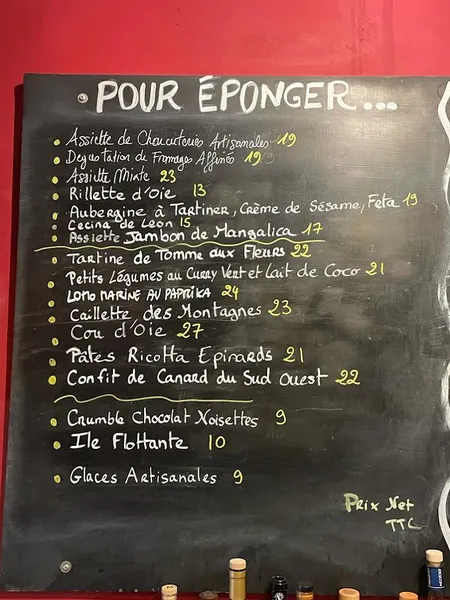 POUR ÉPONGER...
Assiette de Charcuteries Artisanales 19
Dégustation de Fromages Affinés 19
Assiette Mixte 23
Rillette d'Oie 13
Aubergine à Tartiner, Crème de Sésame, Feta 19
Cecina de Léon 15
Assiette Jambon de Mangalica 17
Tartine de Tomme aux Fleurs 22
Petits Légumes au Curry Vert et Lait de Coco 21
LOMO MARINÉ AU PAPRIKA 24
Caillette des Montagnes 23
Cou d'Oie 27
Pâtes Ricotta Epinards 21
Confit de Canard du Sud Ouest 22
Crumble Chocolat Noisettes 9
Ile Flottante 10
Glaces Artisanales 9
Prix Net
TTC